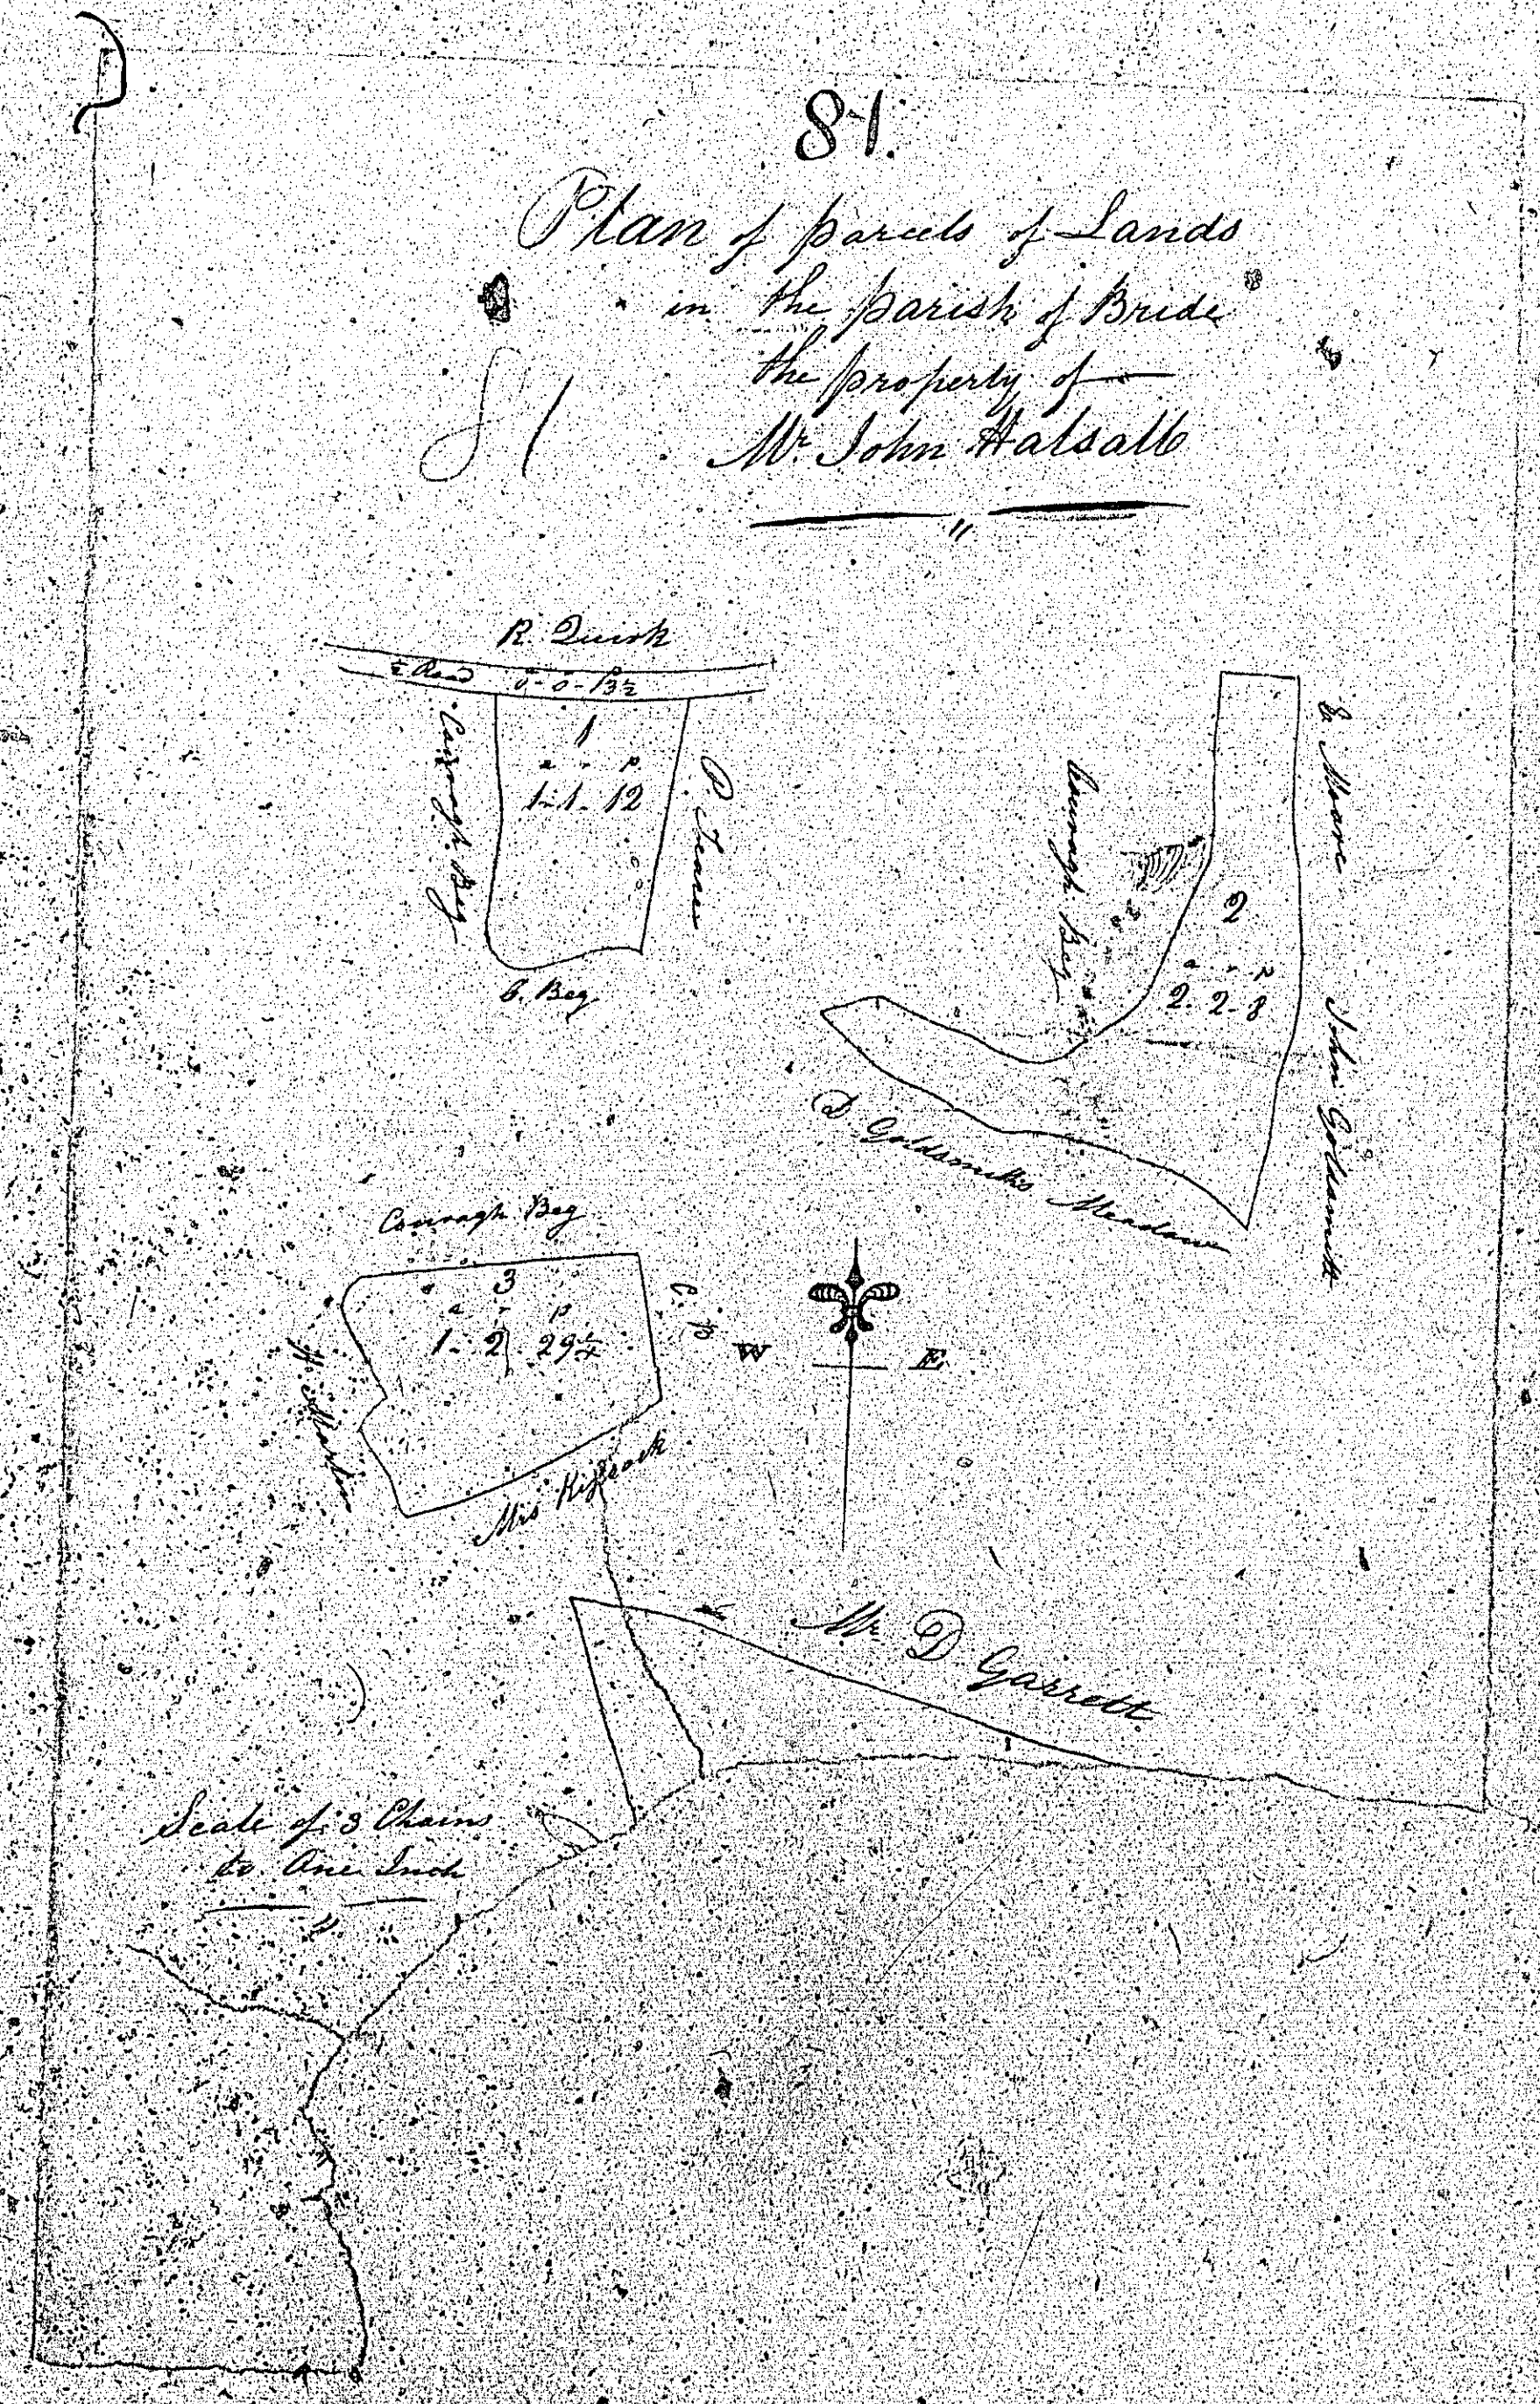 81.
Plan of parcels of Lands
in the parish of Bride
the property of
Mr. John Halsall
81
R. Quirk
½ Road 0-0-13½
1
a - r - p
1-1-12
Courragh Beg
C. Beg
E Moore
Courragh Beg
2
a - r - p
2-2-8
John Goldsmith
D. Goldsmith's Meadow
Courragh Beg
3
a r p
1-2-29¼
C. B
W E
Mrs Kissack
Mr. D. Garrett.
Scale of 3 Chains
to One Inch